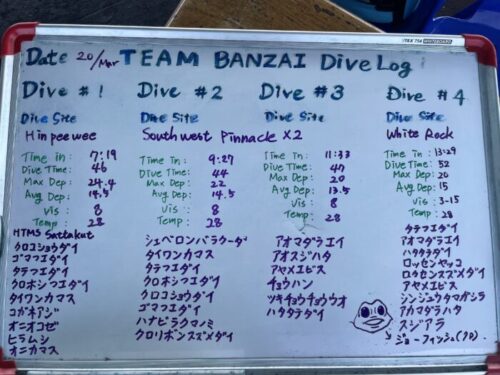 Date 20/Mar TEAM BANZAI Dive Log
Dive #1
Dive Site
Hin pee wee
Time in : 7:19
Dive Time: 46
Max Dep: 24.4
Avg Dep: 14.5
Vis : 8
Temp : 28
HTMS Sattakut
クロコショウダイ
ゴマフエダイ
タテフエダイ
クロホシフエダイ
タイワンカマス
コガネアジ
オニオコゼ
ヒラムシ
オニカマス
Dive #2
Dive Site
Southwest Pinnacle X2
Time in : 9:27
Dive Time: 44
Max Dep: 22
Avg Dep: 14.5
Vis : 8
Temp : 28
シェベロンバラクーダ
タイワンカマス
タテフエダイ
クロホシフエダイ
クロコショウダイ
ゴマフエダイ
ハナビラクマノミ
クロリボンスズメダイ
Dive #3
Dive Site
Time in : 11:33
Dive Time: 40
Max Dep: 20
Avg Dep: 13.5
Vis : 8
Temp : 28
アオマダラエイ
アオスジハタ
アヤメエビス
チョウハン
ツキチョウチョウウオ
ハタタテダイ
Dive #4
Dive Site
White Rock
Time in : 13:29
Dive Time: 52
Max Dep: 20
Avg Dep: 15
Vis : 3-15
Temp : 28
タテフエダイ
アオマダラエイ
ハタタテダイ
ロッセンヤッコ
ロクセンスズメダイ
アヤメエビス
シンジュタマガシラ
アカマダラハタ
スジアラ
ジョーフィッシュ(クロ)